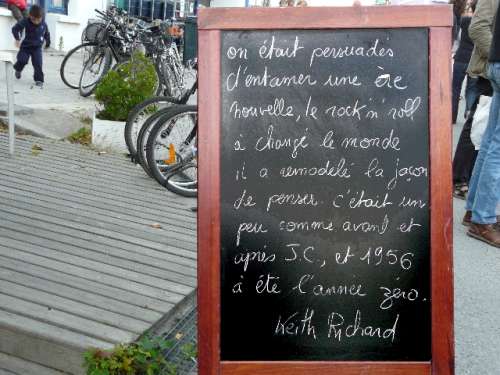 on était persuadés
d'entamer une ère
nouvelle, le rock n' roll
à changé le monde
il a remodelé la façon
de penser. c'était un
peu comme avant et
après J.C., et 1956
à été l'année zéro.
Keith Richard